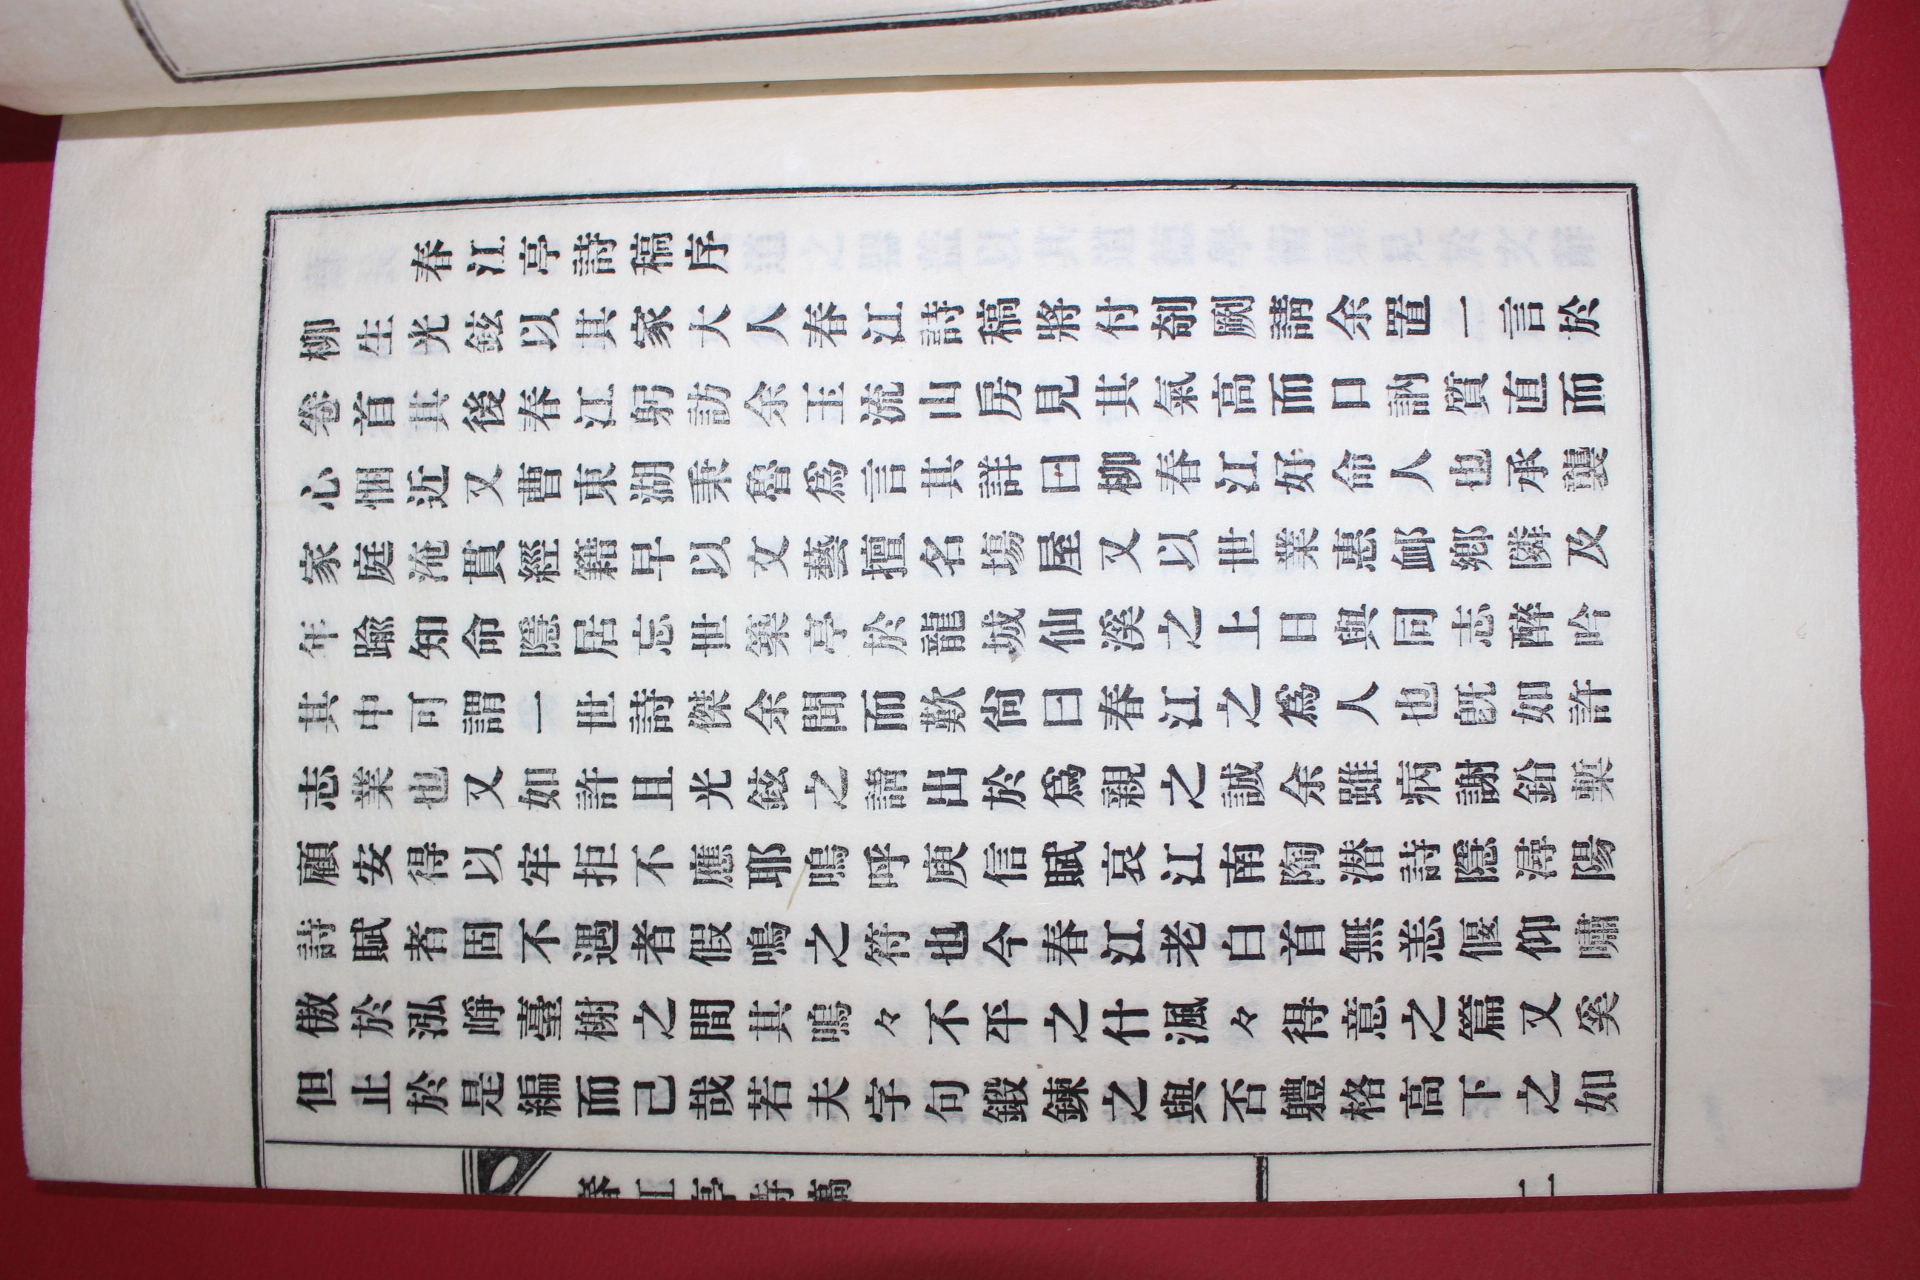 春江亭詩稿序
柳生光鉉以其家大人春江詩稿將付剞劂請余置一言於
卷首其後春江躬訪余玉流山房見其氣高而口訥質直而
心悃近又曹東湖秉魯爲言其詳曰柳春江好命人也承襲
家庭淹貫經籍早以文藝擅名塲屋又以世業惠衈鄉隣及
年踰知命隱居忘世築亭於龍城仙溪之上日與同志醉吟
其中可謂一世詩傑余聞而歎尙曰春江之爲人也旣如許
志業也又如許且光鉉之請出於爲親之誠余雖病謝鉛槧
顧安得以牢拒不應耶嗚呼庾信賦哀江南陶潜詩隱潯陽
詩賦者固不遇者假鳴之符也今春江老白首無恙偃仰嘯
傲於泓崢臺榭之間其鳴々不平之什渢々得意之篇又奚
但止於是編而己哉若夫字句鍛鍊之與否軆格高下之如
春江亭詩稿